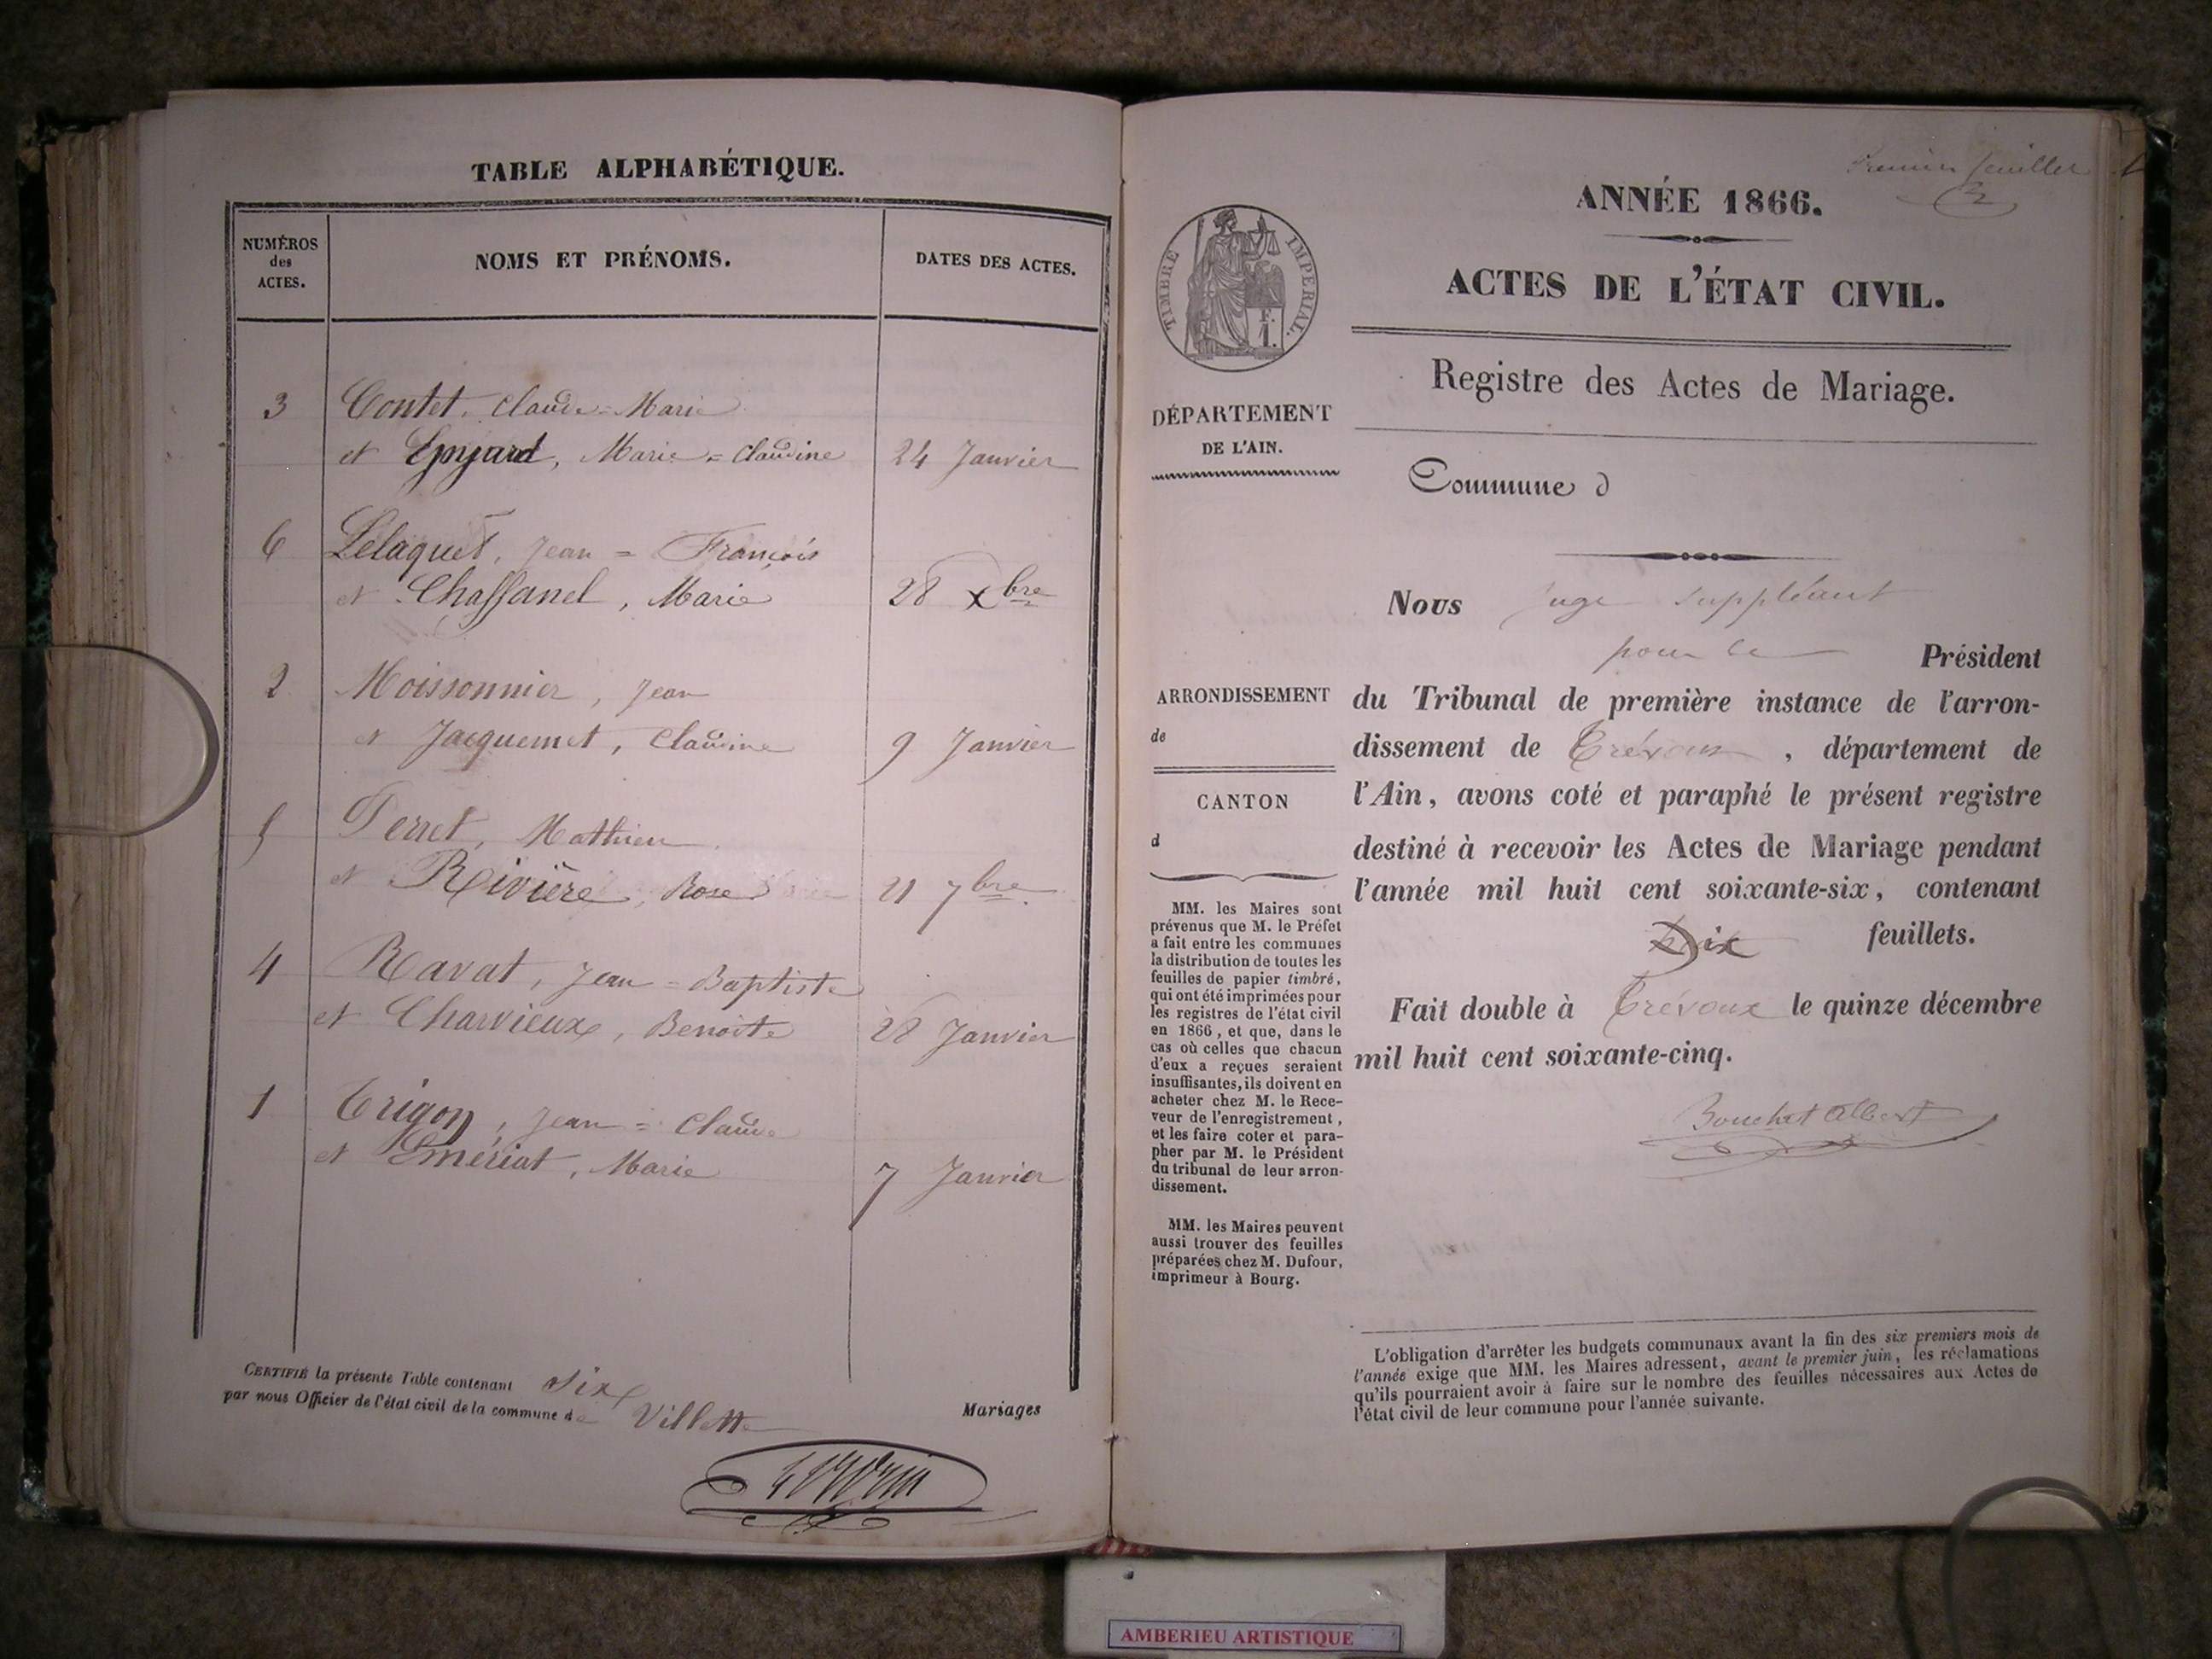 TABLE ALPHABÉTIQUE.
NUMÉROS
des
ACTES.
NOMS ET PRÉNOMS.
DATES DES ACTES.
3 Contet, Claude-Marie
et Epyard, Marie=Claudine 24 Janvier
6 Lelaquet, Jean=François
et Chassanel, Marie 28 Xbre
2 Moissonnier, Jean
et Jacquemet, Claudine 9 Janvier
5 Perret, Mathieu
et Rivière, Rose 21 7bre
4 Ravat, Jean=Baptiste
et Charvieux, Benoîte 28 Janvier
1 Trigon, Jean=Claude
et Emériat, Marie 7 Janvier
CERTIFIÉ la présente Table contenant six
Mariages
par nous Officier de l'état civil de la commune de Villette
Premier feuillet
ANNÉE 1866.
ACTES DE L'ÉTAT CIVIL.
Registre des Actes de Mariage.
TIMBRE IMPÉRIAL.
F.
1.
DÉPARTEMENT
DE L'AIN.
Commune d
Nous Juge suppléant
pour le Président
du Tribunal de première instance de l'arron-
dissement de Trévoux, département de
l'Ain, avons coté et paraphé le présent registre
destiné à recevoir les Actes de Mariage pendant
l'année mil huit cent soixante-six, contenant
Dix feuillets.
Fait double à Trévoux le quinze décembre
mil huit cent soixante-cinq.
Bouchet Albert
ARRONDISSEMENT
de
CANTON
d
MM. les Maires sont
prévenus que M. le Préfet
a fait entre les communes
la distribution de toutes les
feuilles de papier timbré,
qui ont été imprimées pour
les registres de l'état civil
en 1866, et que, dans le
cas où celles que chacun
d'eux a reçues seraient
insuffisantes, ils doivent en
acheter chez M. le Rece-
veur de l'enregistrement,
et les faire coter et para-
pher par M. le Président
du tribunal de leur arron-
dissement.
MM. les Maires peuvent
aussi trouver des feuilles
préparées chez M. Dufour,
imprimeur à Bourg.
L'obligation d'arrêter les budgets communaux avant la fin des six premiers mois de
l'année exige que MM. les Maires adressent, avant le premier juin, les réclamations
qu'ils pourraient avoir à faire sur le nombre des feuilles nécessaires aux Actes de
l'état civil de leur commune pour l'année suivante.
AMBERIEU ARTISTIQUE